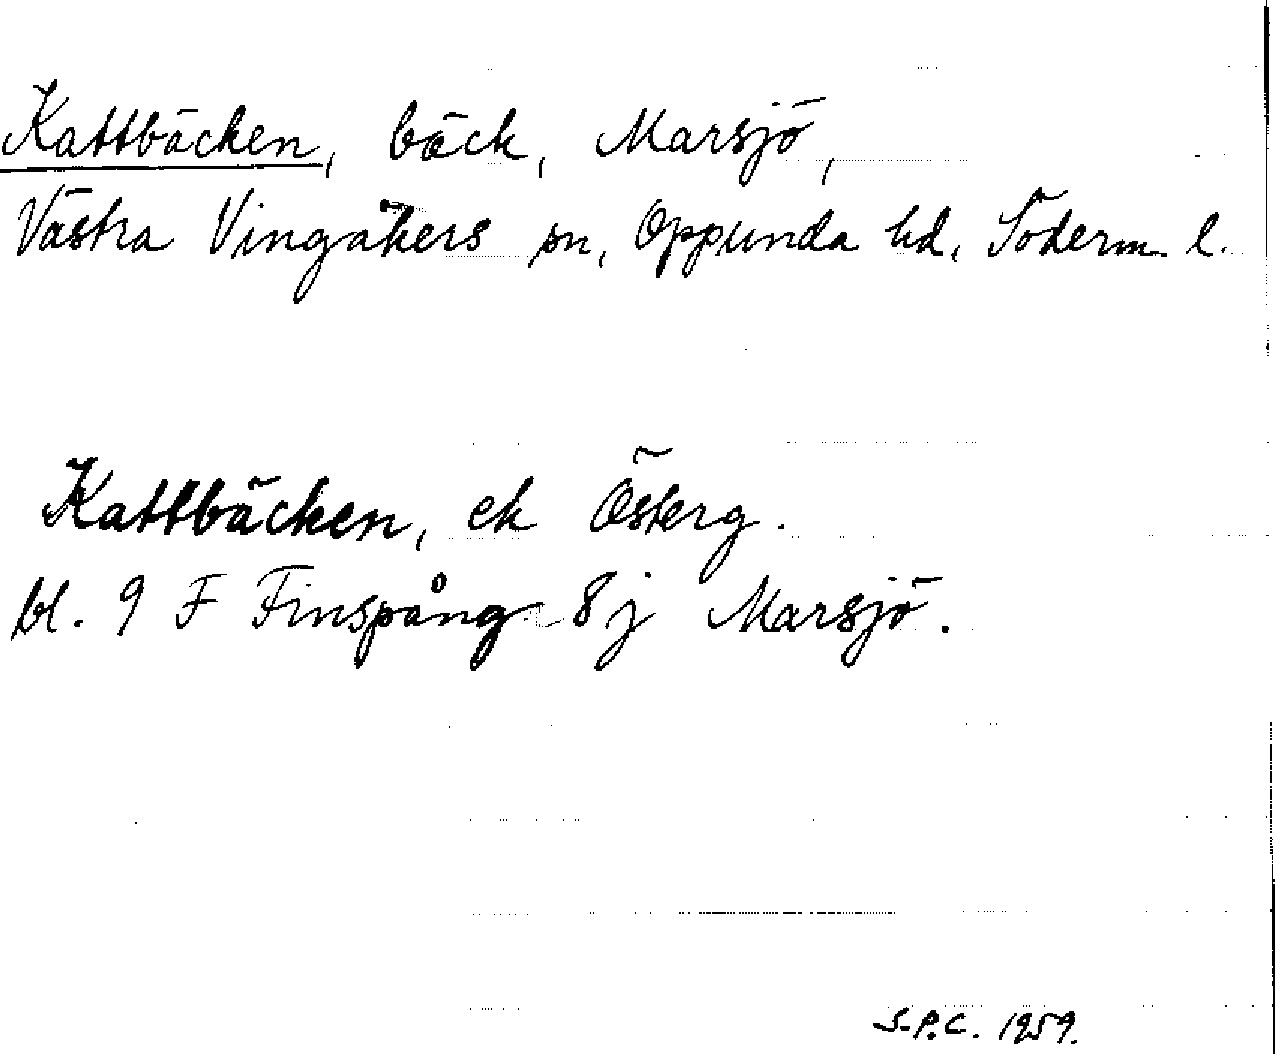 Kattbäcken, bäck, Marsjö,
Västra Vingåkers sn, Oppunda hd, Söderm. l.
Kattbäcken, ek Österg.
bl. 9 F Finspång 8j Marsjö.
S.P.C. 1959.